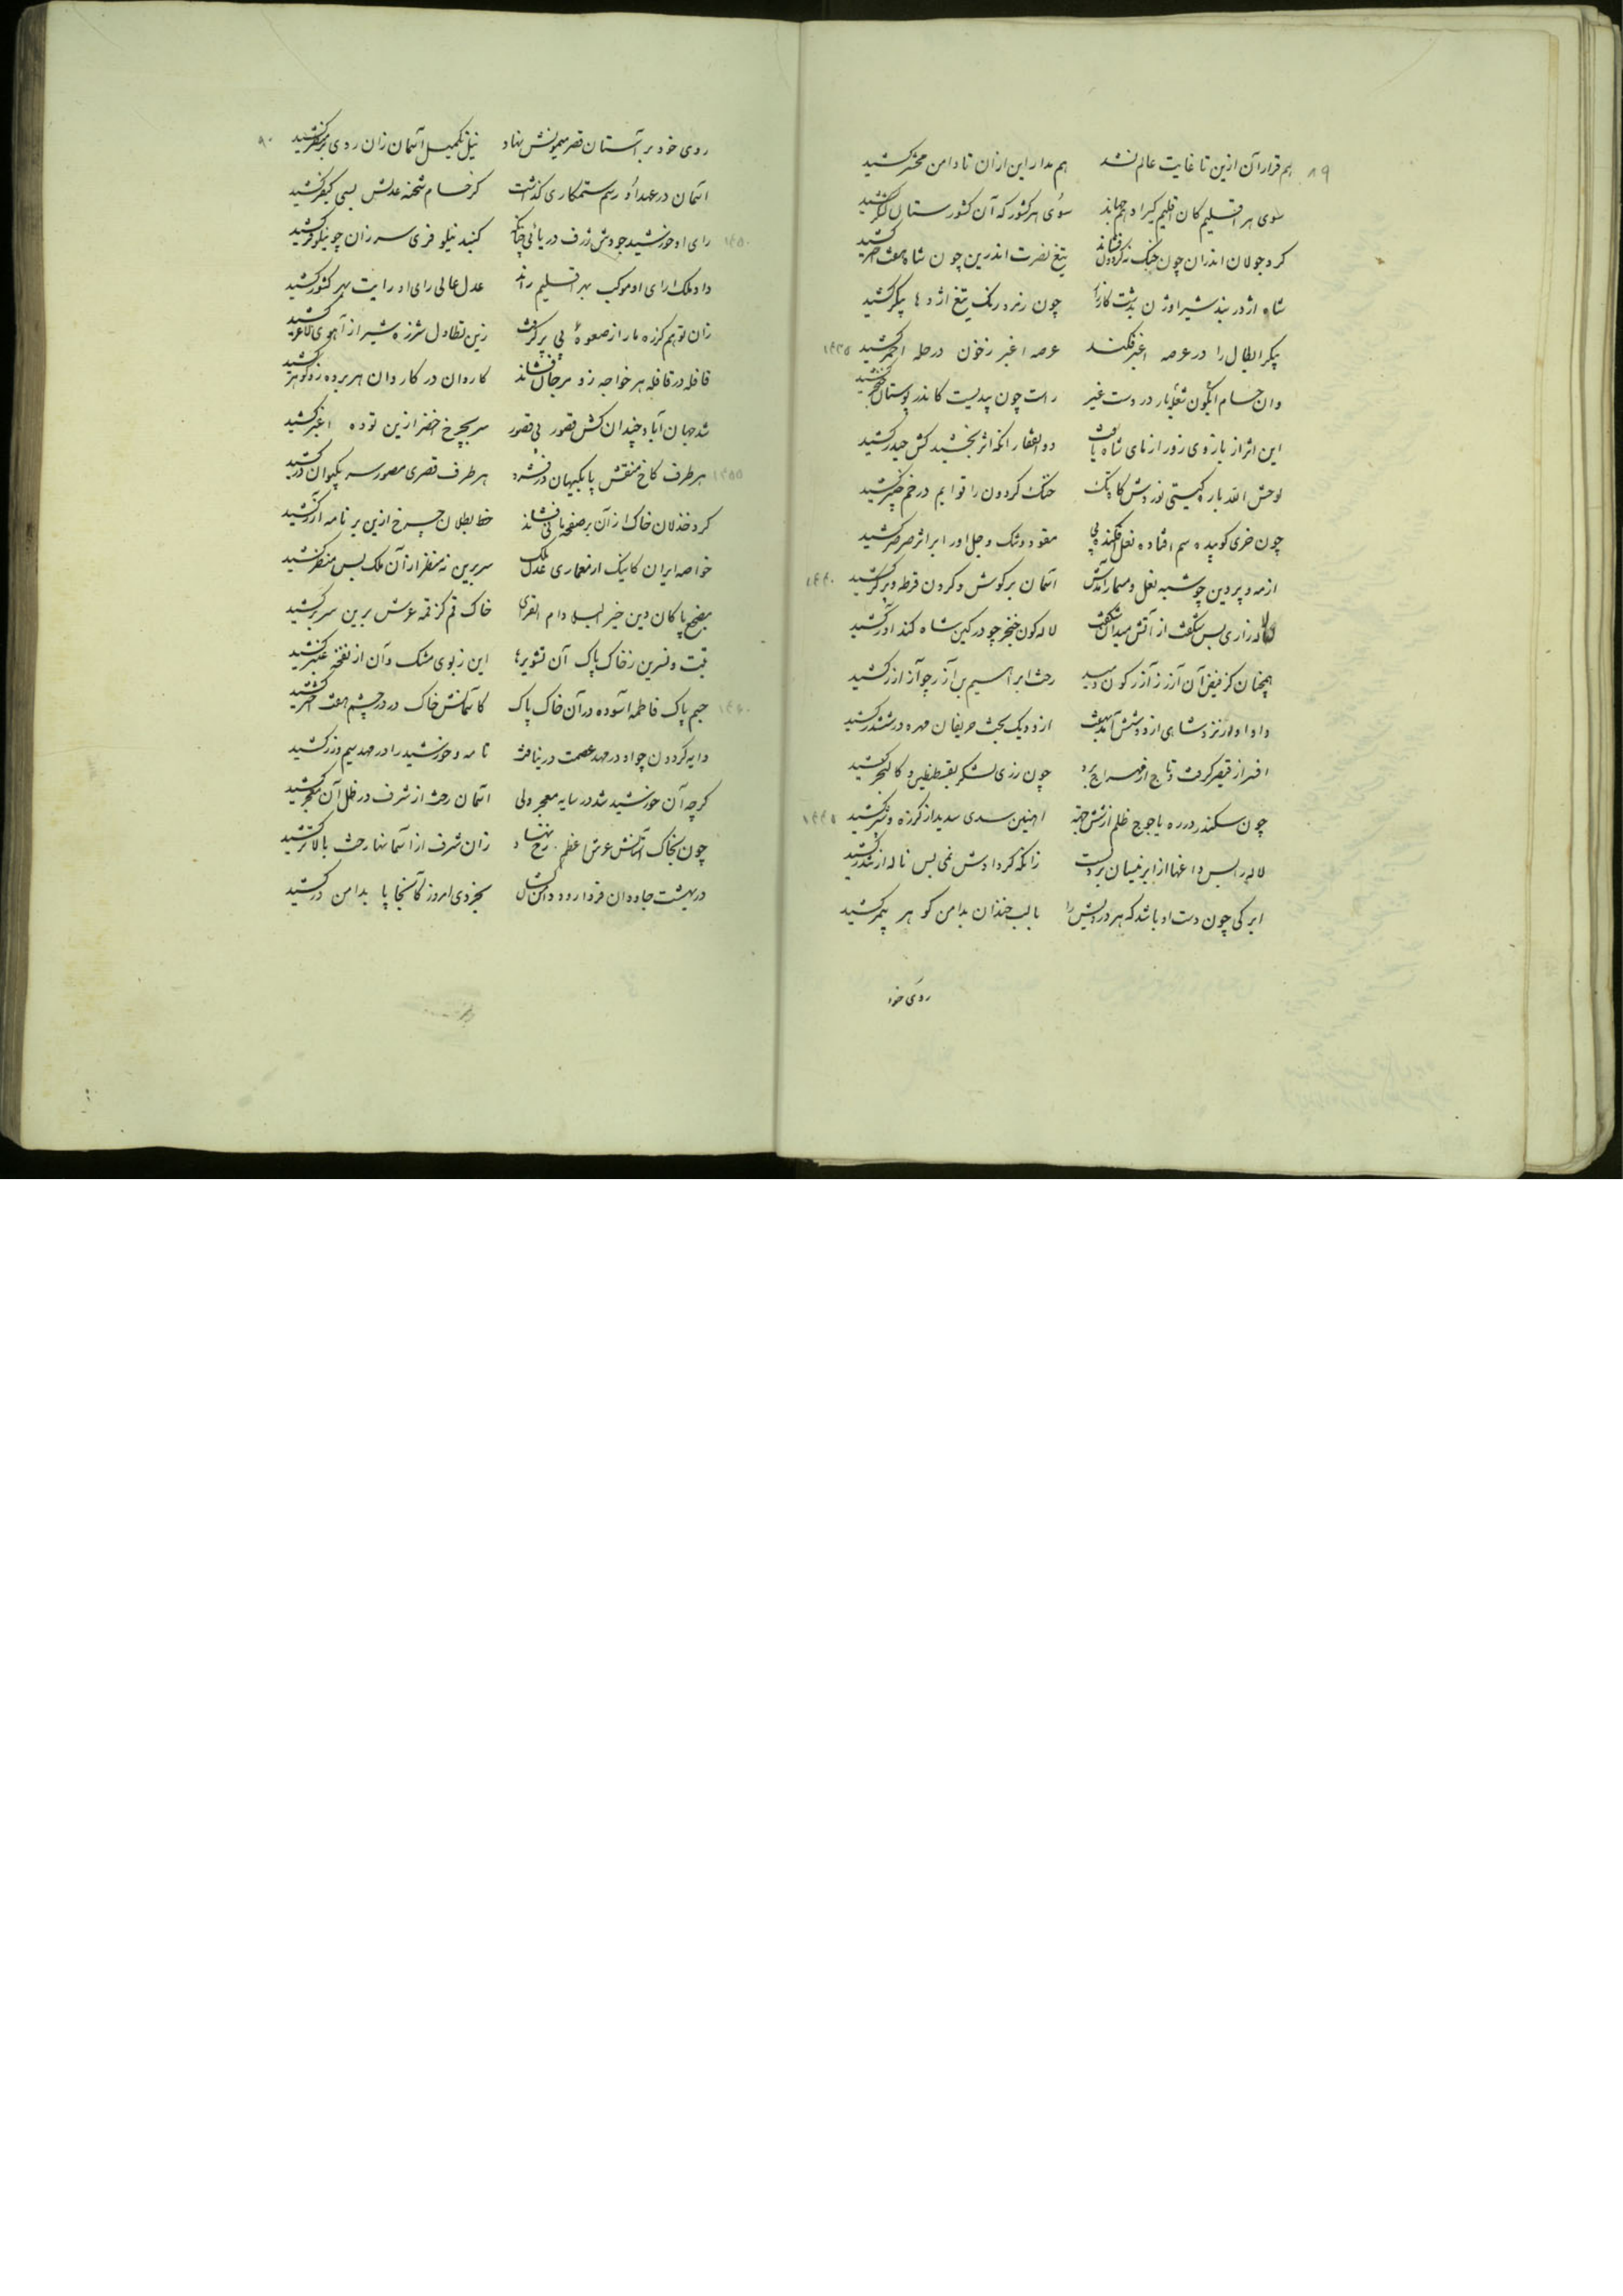 ۸۹
هم قرار آن ازین تا غایت عالم نشد هم مدار این ازان تا دامن محشر کشید
سوی هر اقلیم کان اقلیم گیر او هم جهاند سوی هر کشور که آن کشورستان لشکر کشید
کرد جولان اندران چون خنک گردون تیغ نصرت اندرین چون شاه هفت اختر کشید
شاه اژدر بند شیر اوژن بدشت کارزار چون زمرد رنگ تیغ اژدها پیکر کشید
پیکر ابطال را در عرصه اغبر فکند عرصه اغبر زخون در حله احمر کشید
۱۴۳۵
وان حسام آبگون شعله بار در دست غیر راست چون بیدیست کاندر بوستان خنجر کشید
این اثر از بازوی زور ازمای شاه یافت ذوالفقار انکه اثر بخشید کش حیدر کشید
لوحش الله باره گیتی نوردش کا خنک گردون را قوایم در خم چنبر کشید
چون خری کوبیده سم افتاده نعل افکنده پی مقود و تنگ و جل اور ابر اثر صرصر کشید
ازمه و پروین چو شبه نعل و مسمار آمدش آسمان بر گوش و گردن قرطه و پرگر کشید
۱۴۴۰
لاله زاری بس شگفت از آتش میدان شگفت لاله گون خنجر چو در کین شاه کند اور کشید
همچنان کز فیض آن آزر ز آزرگون دمید رخت ابراهیم بن آزر چو آزر کشید
داد او از نرد شاهی از دو شش آمد بهشت از دو یک بخت حریفان مهره در ششدر کشید
افسر از قیصر گرفت و تاج از مهراج برد چون رزی لشکر بقسطنطین و کالنجر کشید
چون سکندر در ره یاجوج ظلم از شش جهة آهنین سدی سدید از گرزه و خنجر کشید
۱۴۴۵
لاله را بس داغها از ابر نیسان بر دلست زانکه کرد ادش نمی بس ناله از تندر کشید
ابر کی چون دست او باشد که هر درویش را با لب خندان بدامن گوهر بیمر کشید
روی خود
۹۰
روی خود بر آستان قصر میمونش نهاد نیل تکمیل آسمان زان روی بر منظر کشید
آسمان در عهد او رسم ستمکاری گذاشت کز حسام شحنه عدلش بسی کیفر کشید
رای او خورشید جودش ژرف دریائی چنانکه گنبد نیلوفری سر زان چو نیلوفر کشید
۱۴۵۰
داد ملک ارای او موکب بهر اقلیم راند عدل عالی رای او رایت بهر کشور کشید
زان توهم گرزه مار از صعوهٔ بی پر گرفت زین تطاول شرزه شیر از آهوی لاغر کشید
قافله در قافله هر خواجه زو مرجان فشاند کاروان در کاروان هر برده زو گوهر کشید
شد جهان آباد چندان کش قصور بی قصور سر بچرخ اخضر ازین توده اغبر کشید
هر طرف کاخ منقش پا بگیهان در فشرد هر طرف قصری مصور سر بکیوان در کشید
۱۴۵۵
گرد خذلان خاک ازان بر صفحه مانی فشاند خط بطلان چرخ ازین بر نامه آزر کشید
خواصه ایران کاینک از معماری عدل ملک سر برین نه منظر ازان ملک بس منظر کشید
مضجع پاکان دین خیر البلاد ام القری خاک قم کز قمه عرش برین سر بر کشید
تبت و نسرین زخاک پاک آن تشویرها این زبوی مشک و آن از نفخه عنبر کشید
جسم پاک فاطمه آسوده در آن خاک پاک کآسمانش خاک در در چشم هفت اختر کشید
۱۴۶۰
دایه گردون چو او در مهد عصمت در نیافت تا مه و خورشید را در مهد سیم و زر کشید
گرچه آن خورشید شد در سایه معجر ولی آسمان رخت از شرف در ظل آن معجر کشید
چون بخاک آستانش عرش اعظم رخ نهاد زان شرف از آسمانها رخت بالاتر کشید
در بهشت جاودان فردا رود دامن کشان بخردی امروز کآنجا پا بدامن در کشید